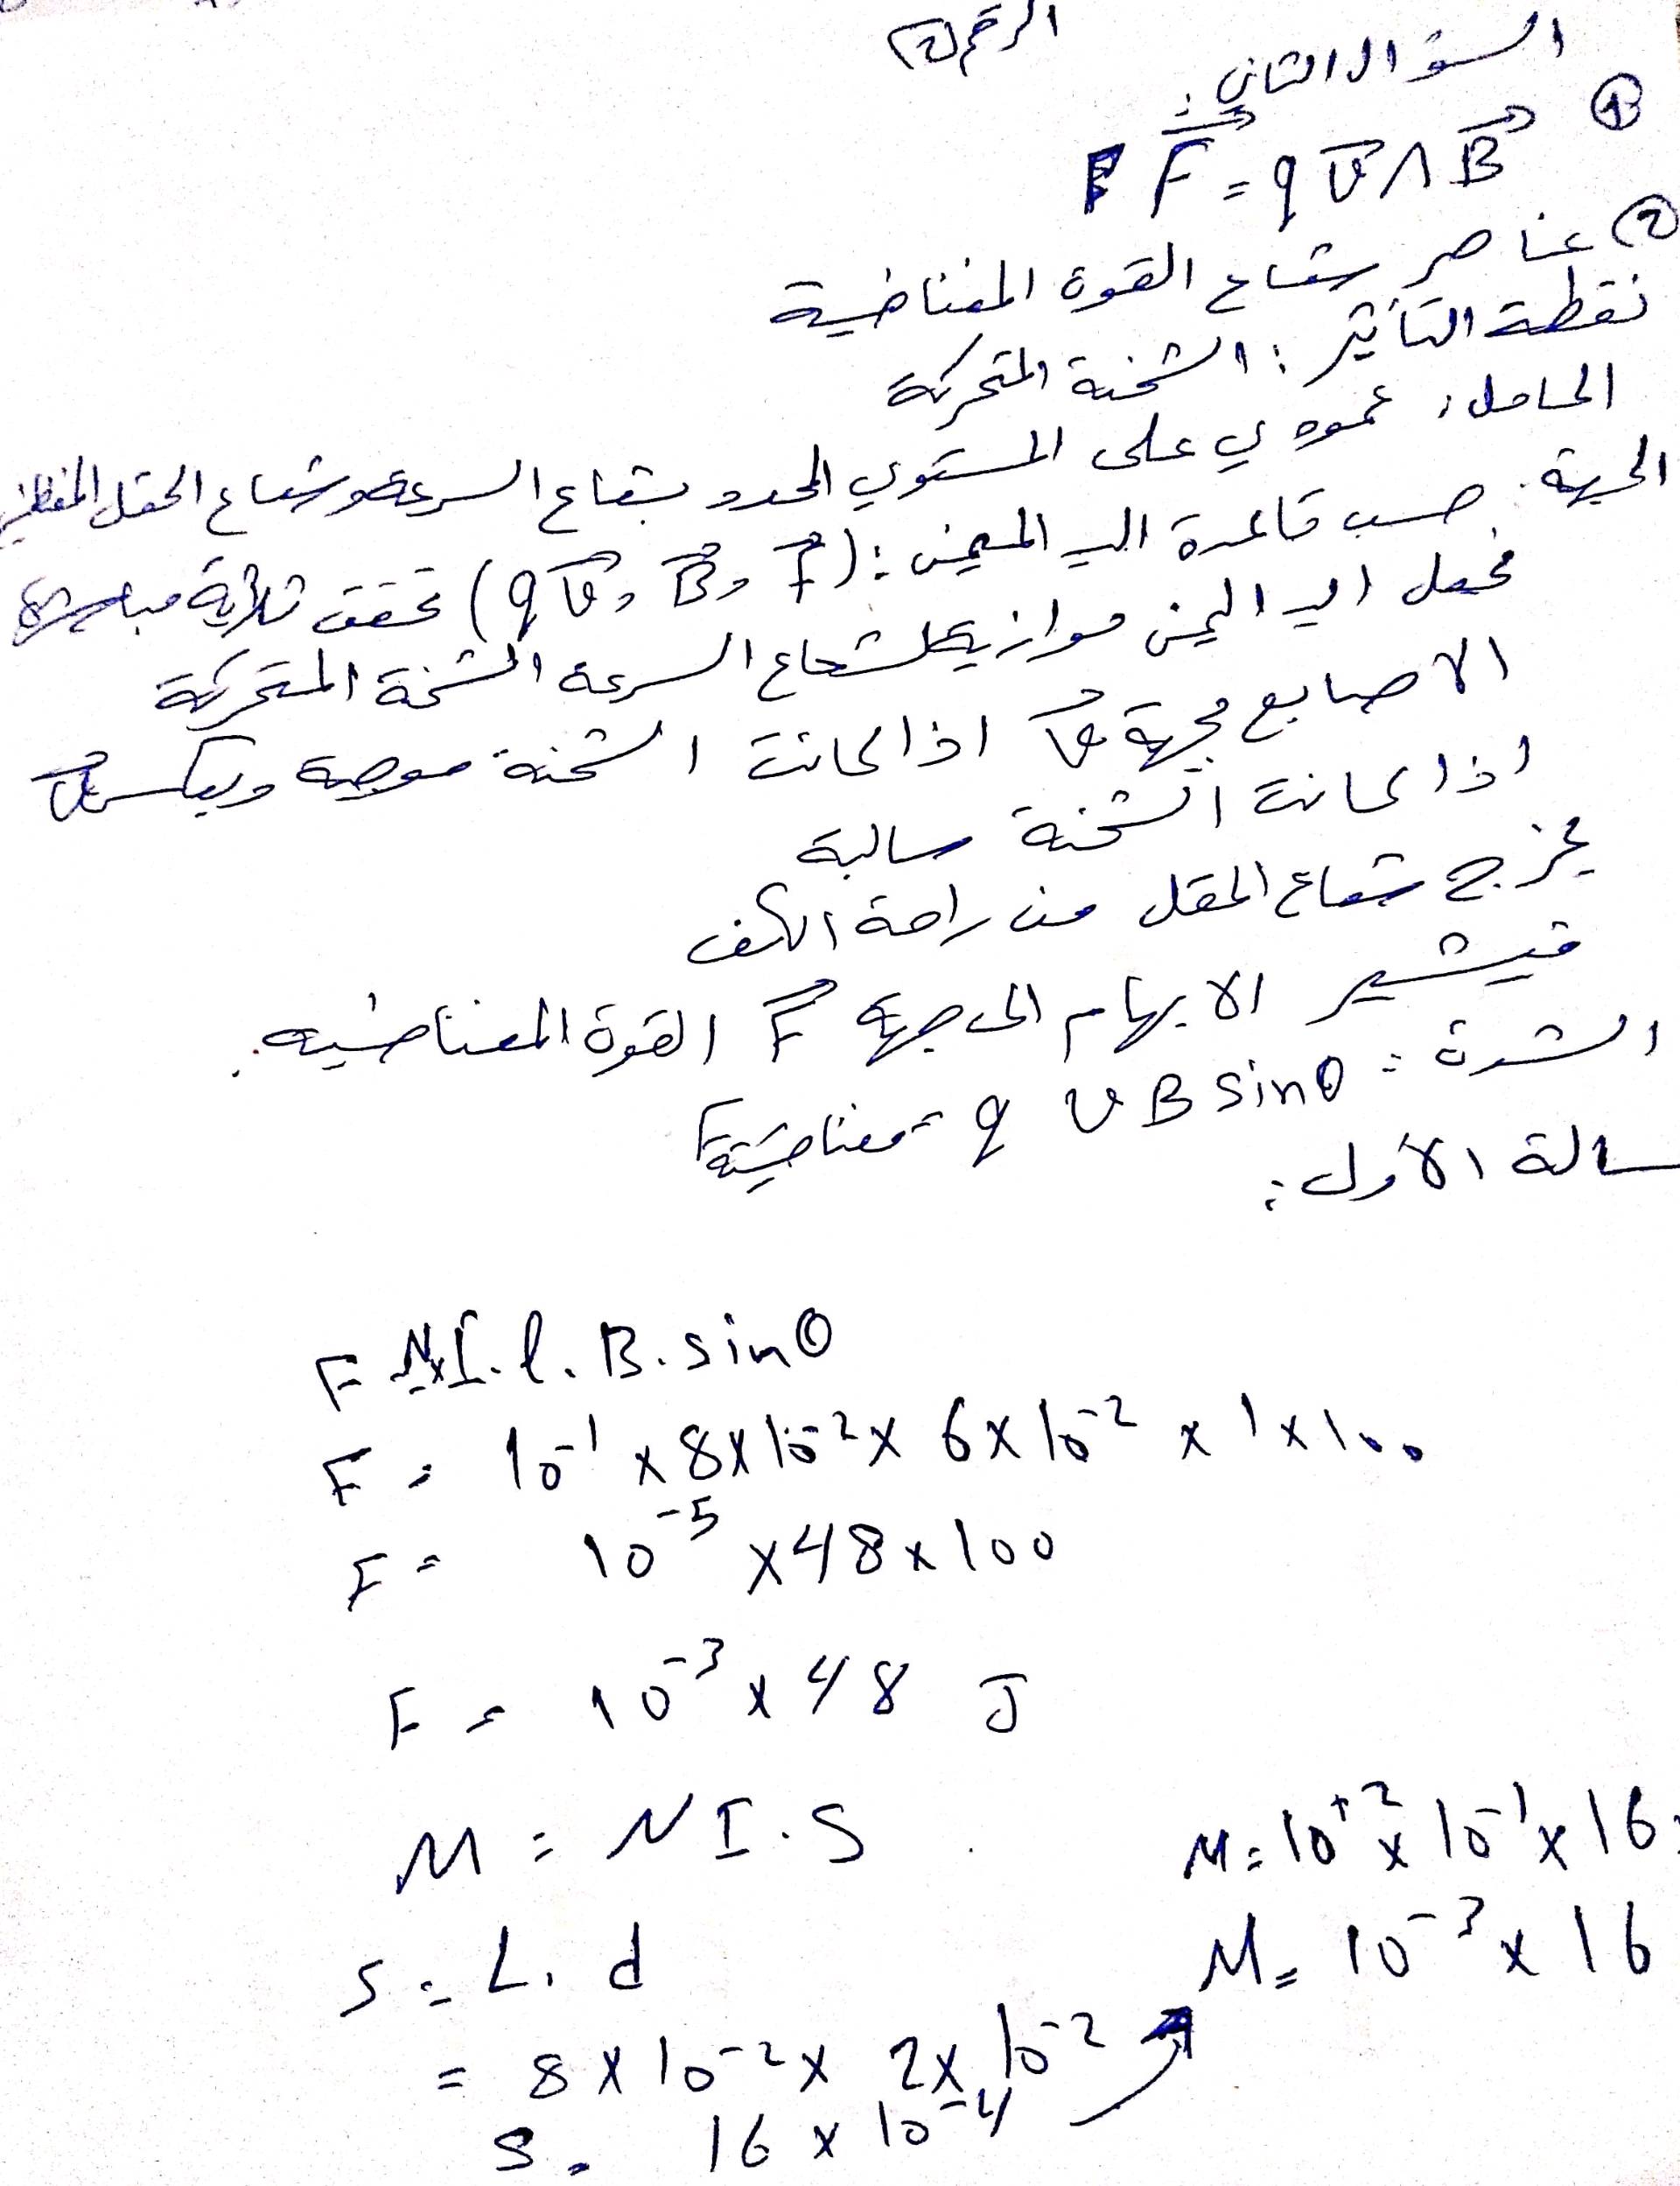 الرقم ②
السؤال الثاني:
①
F = q v ∧ B
② عناصر شعاع القوة المغناطيسية
نقطة التأثير: الشحنة المتحركة
الحامل: عمودي على المستوي المحدد بشعاع السرعة وشعاع الحقل
الجهة: حسب قاعدة اليد اليمنى: (qv, B, F) تحقق ثلاثية مباشرة
نجعل اليد اليمنى موازية لشعاع السرعة الشحنة المتحركة
الاصابع بجهة v اذا كانت الشحنة موجبة وبعكس v
اذا كانت الشحنة سالبة
يخرج شعاع الحقل من راحة الكف
فيشير الابهام الى جهة F القوة المغناطيسية.
الشدة: F مغناطيسية = q v B sinθ
سالة الأولى:
F = N×I.l.B.sinθ
F = 10⁻¹ × 8×10⁻² × 6×10⁻² × 1×100
F = 10⁻⁵ ×48×100
F = 10⁻³ × 48 J
M = N I.S
M = 10⁺² × 10⁻¹ × 16
S = L. d
M = 10⁻³ × 16
= 8 × 10⁻² × 2×10⁻²
S = 16 × 10⁻⁴